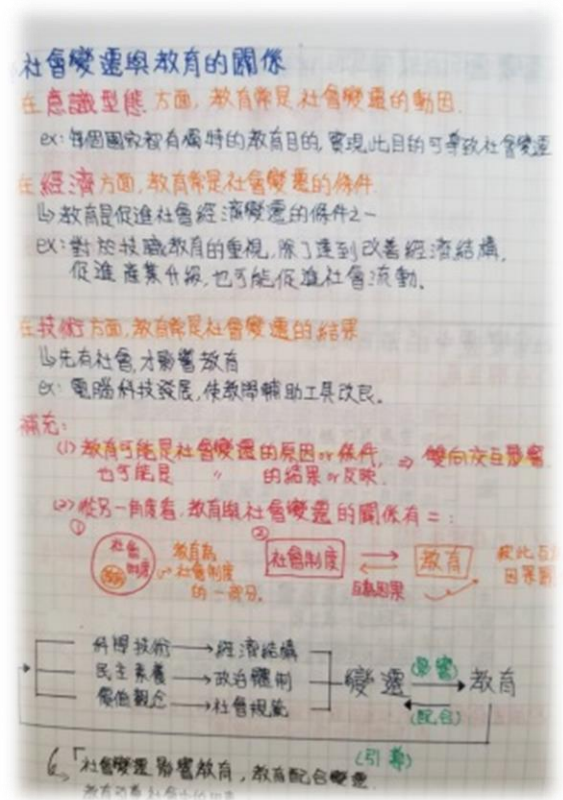 社會變遷與教育的關係
在意識型態方面，教育常是社會變遷的動因.
ex: 每個國家都有獨特的教育目的，實現此目的可導致社會變遷
在經濟方面，教育常是社會變遷的條件.
↳教育是促進社會經濟變遷的條件之一
ex: 對於技職教育的重視，除了達到改善經濟結構，
促進產業升級，也可能促進社會流動。
在技術方面，教育常是社會變遷的結果
↳先有社會，才影響教育
ex: 電腦科技發展，使教學輔助工具改良。
補充:
(1) 教育可能是社會變遷的原因or條件， ⇒ 雙向交互影響
也可能是 〃 的結果or反映.
(2) 從另一角度看，教育與社會變遷的關係有二:
① 社會制度
教育為
社會制度
的一部分.
② 社會制度 ⇄ 教育
互為因果
彼此互
因果關
科學技術→經濟結構
民主素養→政治體制
價值觀念→社會規範
變遷 (影響) 教育
(配合)
(引導)
「社會變遷影響教育，教育配合變遷